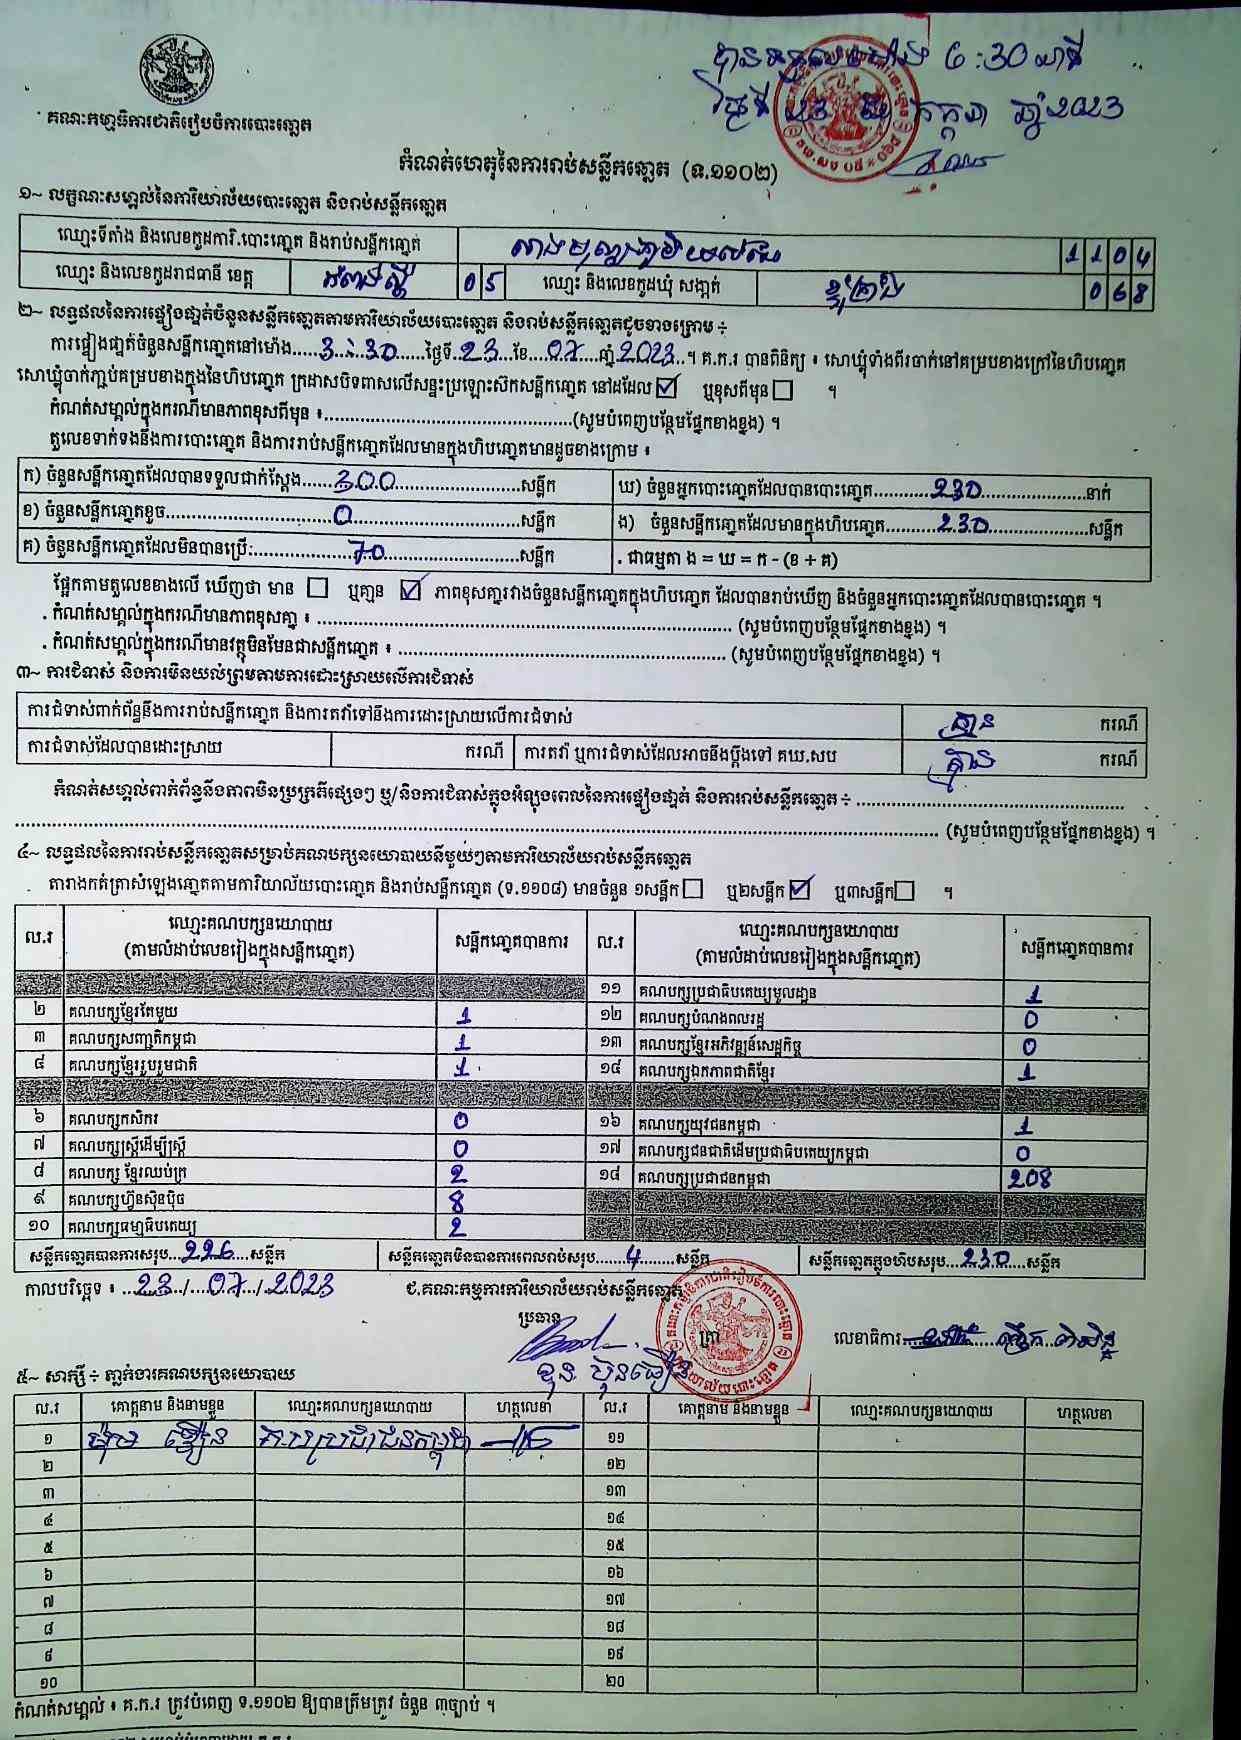 បានទទួលម៉ោង 6:30 នាទី
ថ្ងៃទី 23 ខែ កក្កដា ឆ្នាំ2023
គណៈកម្មាធិការជាតិរៀបចំការបោះឆ្នោត
កំណត់ហេតុនៃការរាប់សន្លឹកឆ្នោត (ទ.១១០២)
១~ លក្ខណៈសម្គាល់នៃការិយាល័យបោះឆ្នោត និងរាប់សន្លឹកឆ្នោត
ឈ្មោះទីតាំង និងលេខកូដការិ.បោះឆ្នោត និងរាប់សន្លឹកឆ្នោត 1104
ឈ្មោះ និងលេខកូដរាជធានី ខេត្ត កំពង់ស្ពឺ 05 ឈ្មោះ និងលេខកូដឃុំ សង្កាត់ 068
២~ លទ្ធផលនៃការផ្ទៀងផ្ទាត់ចំនួនសន្លឹកឆ្នោតតាមការិយាល័យបោះឆ្នោត និងរាប់សន្លឹកឆ្នោតដូចខាងក្រោម ÷
ការផ្ទៀងផ្ទាត់ចំនួនសន្លឹកឆ្នោតនៅម៉ោង.....3:30.....ថ្ងៃទី..23..ខែ...07...ឆ្នាំ2023..។ គ.ក.រ បានពិនិត្យ ៖ សោឃ្លុំទាំងពីរចាក់នៅគម្របខាងក្រៅនៃហិបឆ្នោត
សោឃ្លុំចាក់ភ្ជាប់គម្របខាងក្នុងនៃហិបឆ្នោត ក្រដាសបិទពាសលើសន្ទះប្រឡោះស៊កសន្លឹកឆ្នោត នៅដដែល ☑ ឬខុសពីមុន ☐ ។
កំណត់សម្គាល់ក្នុងករណីមានភាពខុសពីមុន ៖..........(សូមបំពេញបន្ថែមផ្នែកខាងខ្នង) ។
តួលេខទាក់ទងនឹងការបោះឆ្នោត និងការរាប់សន្លឹកឆ្នោតដែលមានក្នុងហិបឆ្នោតមានដូចខាងក្រោម ៖
ក) ចំនួនសន្លឹកឆ្នោតដែលបានទទួលជាក់ស្តែង.....300.....សន្លឹក ឃ) ចំនួនអ្នកបោះឆ្នោតដែលបានបោះឆ្នោត.....230.....នាក់
ខ) ចំនួនសន្លឹកឆ្នោតខូច.....0.....សន្លឹក ង) ចំនួនសន្លឹកឆ្នោតដែលមានក្នុងហិបឆ្នោត.....230.....សន្លឹក
គ) ចំនួនសន្លឹកឆ្នោតដែលមិនបានប្រើ:.....70.....សន្លឹក . ជាធម្មតា ង = ឃ = ក - (ខ + គ)
ផ្អែកតាមតួលេខខាងលើ ឃើញថា មាន ☐ ឬគ្មាន ☑ ភាពខុសគ្នារវាងចំនួនសន្លឹកឆ្នោតក្នុងហិបឆ្នោត ដែលបានរាប់ឃើញ និងចំនួនអ្នកបោះឆ្នោតដែលបានបោះឆ្នោត ។
. កំណត់សម្គាល់ក្នុងករណីមានភាពខុសគ្នា ៖ .......... (សូមបំពេញបន្ថែមផ្នែកខាងខ្នង) ។
. កំណត់សម្គាល់ក្នុងករណីមានវត្ថុមិនមែនជាសន្លឹកឆ្នោត ៖ .......... (សូមបំពេញបន្ថែមផ្នែកខាងខ្នង) ។
៣~ ការជំទាស់ និងការមិនយល់ព្រមតាមការដោះស្រាយលើការជំទាស់
ការជំទាស់ពាក់ព័ន្ធនឹងការរាប់សន្លឹកឆ្នោត និងការតវ៉ាទៅនឹងការដោះស្រាយលើការជំទាស់ គ្មាន ករណី
ការជំទាស់ដែលបានដោះស្រាយ ករណី ការតវ៉ា ឬការជំទាស់ដែលអាចនឹងប្តឹងទៅ គឃ.សប គ្មាន ករណី
កំណត់សម្គាល់ពាក់ព័ន្ធនឹងភាពមិនប្រក្រតីផ្សេងៗ ឬ/និងការជំទាស់ក្នុងអំឡុងពេលនៃការផ្ទៀងផ្ទាត់ និងការរាប់សន្លឹកឆ្នោត ÷ ..........
.......... (សូមបំពេញបន្ថែមផ្នែកខាងខ្នង) ។
៤~ លទ្ធផលនៃការរាប់សន្លឹកឆ្នោតសម្រាប់គណបក្សនយោបាយនីមួយៗតាមការិយាល័យរាប់សន្លឹកឆ្នោត
តារាងកត់ត្រាសំឡេងឆ្នោតតាមការិយាល័យបោះឆ្នោត និងរាប់សន្លឹកឆ្នោត (ទ.១១០៨) មានចំនួន ១សន្លឹក ☐ ឬ២សន្លឹក ☑ ឬ៣សន្លឹក ☐ ។
ល.រ ឈ្មោះគណបក្សនយោបាយ (តាមលំដាប់លេខរៀងក្នុងសន្លឹកឆ្នោត) សន្លឹកឆ្នោតបានការ ល.រ ឈ្មោះគណបក្សនយោបាយ (តាមលំដាប់លេខរៀងក្នុងសន្លឹកឆ្នោត) សន្លឹកឆ្នោតបានការ
១១ គណបក្សប្រជាធិបតេយ្យមូលដ្ឋាន 1
២ គណបក្សខ្មែរតែមួយ 1 ១២ គណបក្សបំណងពលរដ្ឋ 0
៣ គណបក្សសញ្ជាតិកម្ពុជា 1 ១៣ គណបក្សខ្មែរអភិវឌ្ឍន៍សេដ្ឋកិច្ច 0
៤ គណបក្សខ្មែររួបរួមជាតិ 1 ១៤ គណបក្សឯកភាពជាតិខ្មែរ 1
៦ គណបក្សកសិករ 0 ១៦ គណបក្សយុវជនកម្ពុជា 1
៧ គណបក្សស្ត្រីដើម្បីស្ត្រី 0 ១៧ គណបក្សជនជាតិដើមប្រជាធិបតេយ្យកម្ពុជា 0
៨ គណបក្ស ខ្មែរឈប់ក្រ 2 ១៨ គណបក្សប្រជាជនកម្ពុជា 208
៩ គណបក្សហ៊្វុនស៊ិនប៉ិច 8
១០ គណបក្សធម្មាធិបតេយ្យ 2
សន្លឹកឆ្នោតបានការសរុប...226...សន្លឹក សន្លឹកឆ្នោតមិនបានការពេលរាប់សរុប.......4.......សន្លឹក សន្លឹកឆ្នោតក្នុងហិបសរុប...230...សន្លឹក
កាលបរិច្ឆេទ ៖ ...23.../...07.../.2023 ជ.គណៈកម្មការការិយាល័យរាប់សន្លឹកឆ្នោត
ប្រធាន ត្រា លេខាធិការ
៥~ សាក្សី ÷ ភ្នាក់ងារគណបក្សនយោបាយ
ល.រ គោត្តនាម និងនាមខ្លួន ឈ្មោះគណបក្សនយោបាយ ហត្ថលេខា ល.រ គោត្តនាម និងនាមខ្លួន ឈ្មោះគណបក្សនយោបាយ ហត្ថលេខា
១ គ.ប.ប្រជាជនកម្ពុជា ១១
២ ១២
៣ ១៣
៤ ១៤
៥ ១៥
៦ ១៦
៧ ១៧
៨ ១៨
៩ ១៩
១០ ២០
កំណត់សម្គាល់ ៖ គ.ក.រ ត្រូវបំពេញ ទ.១១០២ ឱ្យបានត្រឹមត្រូវ ចំនួន ៣ច្បាប់ ។